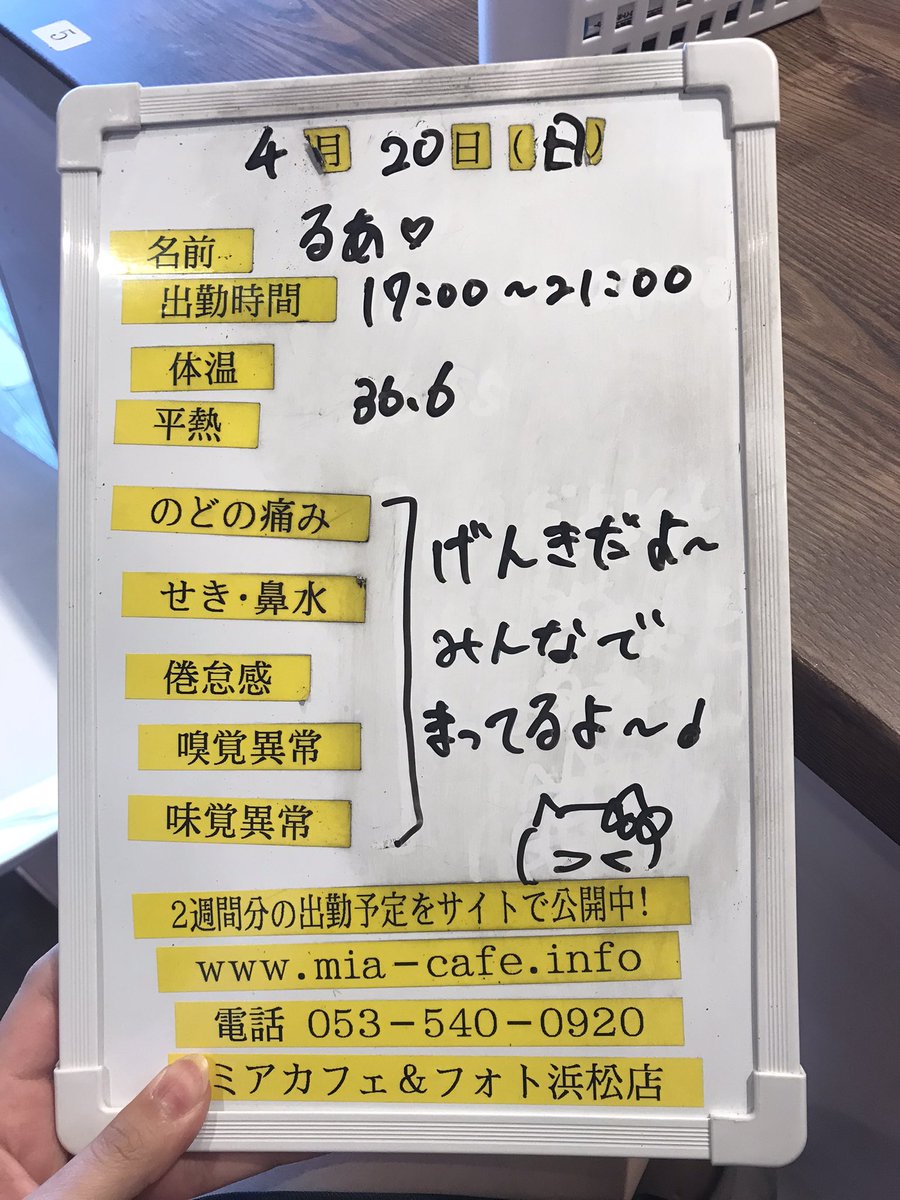 5
4月 20日(日)
名前 るあ♡
出勤時間 17:00~21:00
体温 36.6
平熱
のどの痛み
せき・鼻水
倦怠感
嗅覚異常
味覚異常
げんきだよ~
みんなで
まってるよ~♪
2週間分の出勤予定をサイトで公開中!
www.mia-cafe.info
電話 053-540-0920
ミアカフェ&フォト浜松店